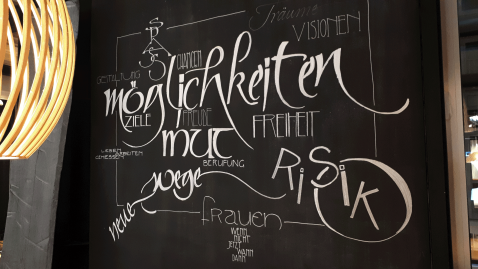 Träume
VISIONEN
SPASS
CHANCEN
GESTALTUNG
möglichkeiten
ZIELE
FREUDE
FREIHEIT
mut
BERUFUNG
LEBEN
ARBEITEN
wege
RiSiK
neue
frauen
WENN
NICHT
JETZT
WANN
DANN